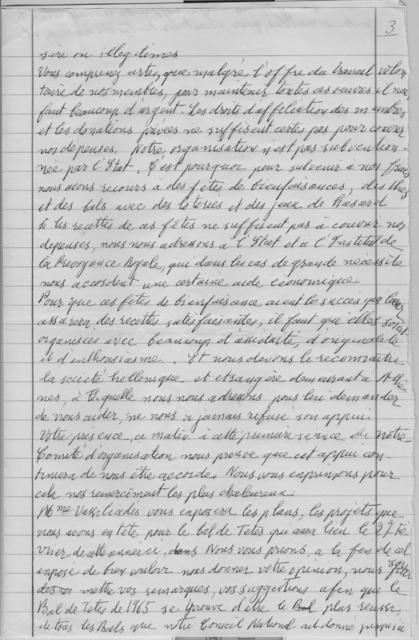 3
sère ou illegitimes
Vous comprenez certes, que malgré l'offre du travail volon
taire de nos membres, pour maintenir toutes ces œuvres il nous
faut beaucoup d'argent. Les droits d'affiliation des membres
et les donations privées ne suffisent certes pas pour couvrir
nos depenses. Notre organisation n'est pas subvention-
née par l'Etat. C'est pourquoi pour subvenir à nos frais
nous avons recours à des fêtes de bienfaisances, des thés
et des bals avec des loteries et des jeux de hasard
Si les recettes de ces fêtes ne suffisent pas à couvrir nos
depenses, nous nous adressons à l'Etat et à l'Institut de
la Prevoyance Royale, qui dans les cas de grande necessité
nous accordent une certaine aide économique
Pour que ces fêtes de bienfaisance aient le succès qui leur
assurera des recettes satisfaisantes, il faut qu'elles soient
organisées avec beaucoup d'assiduité, d'originalité
et d'enthousiasme. Et nous devons le reconnaître
la société hellenique et etrangère demeurant à Athè
nes, à laquelle nous nous adressons pour lui demander
de nous aider, ne nous a jamais refusé son appui
Votre présence, ce matin à cette première séance de notre
Comité d'organisation nous prouve que cet appui con-
tinuera de nous être accordé. Nous vous exprimons pour
cela nos remerciments les plus chaleureux
Mme vous exposera les plans, les projets que
nous avons en tête pour le bal de Têtes qui aura lieu le 27 Fe
vrier de cette année, Nous vous prions, à la fin de cet
exposé de bien vouloir nous donner votre opinion, nous
vos remarques, vos suggestions afin que le
Bal de Têtes de 1965 se trouve d'être le Bal plus reussi
de tous les Bals que notre Conseil National a donné jusqu'à